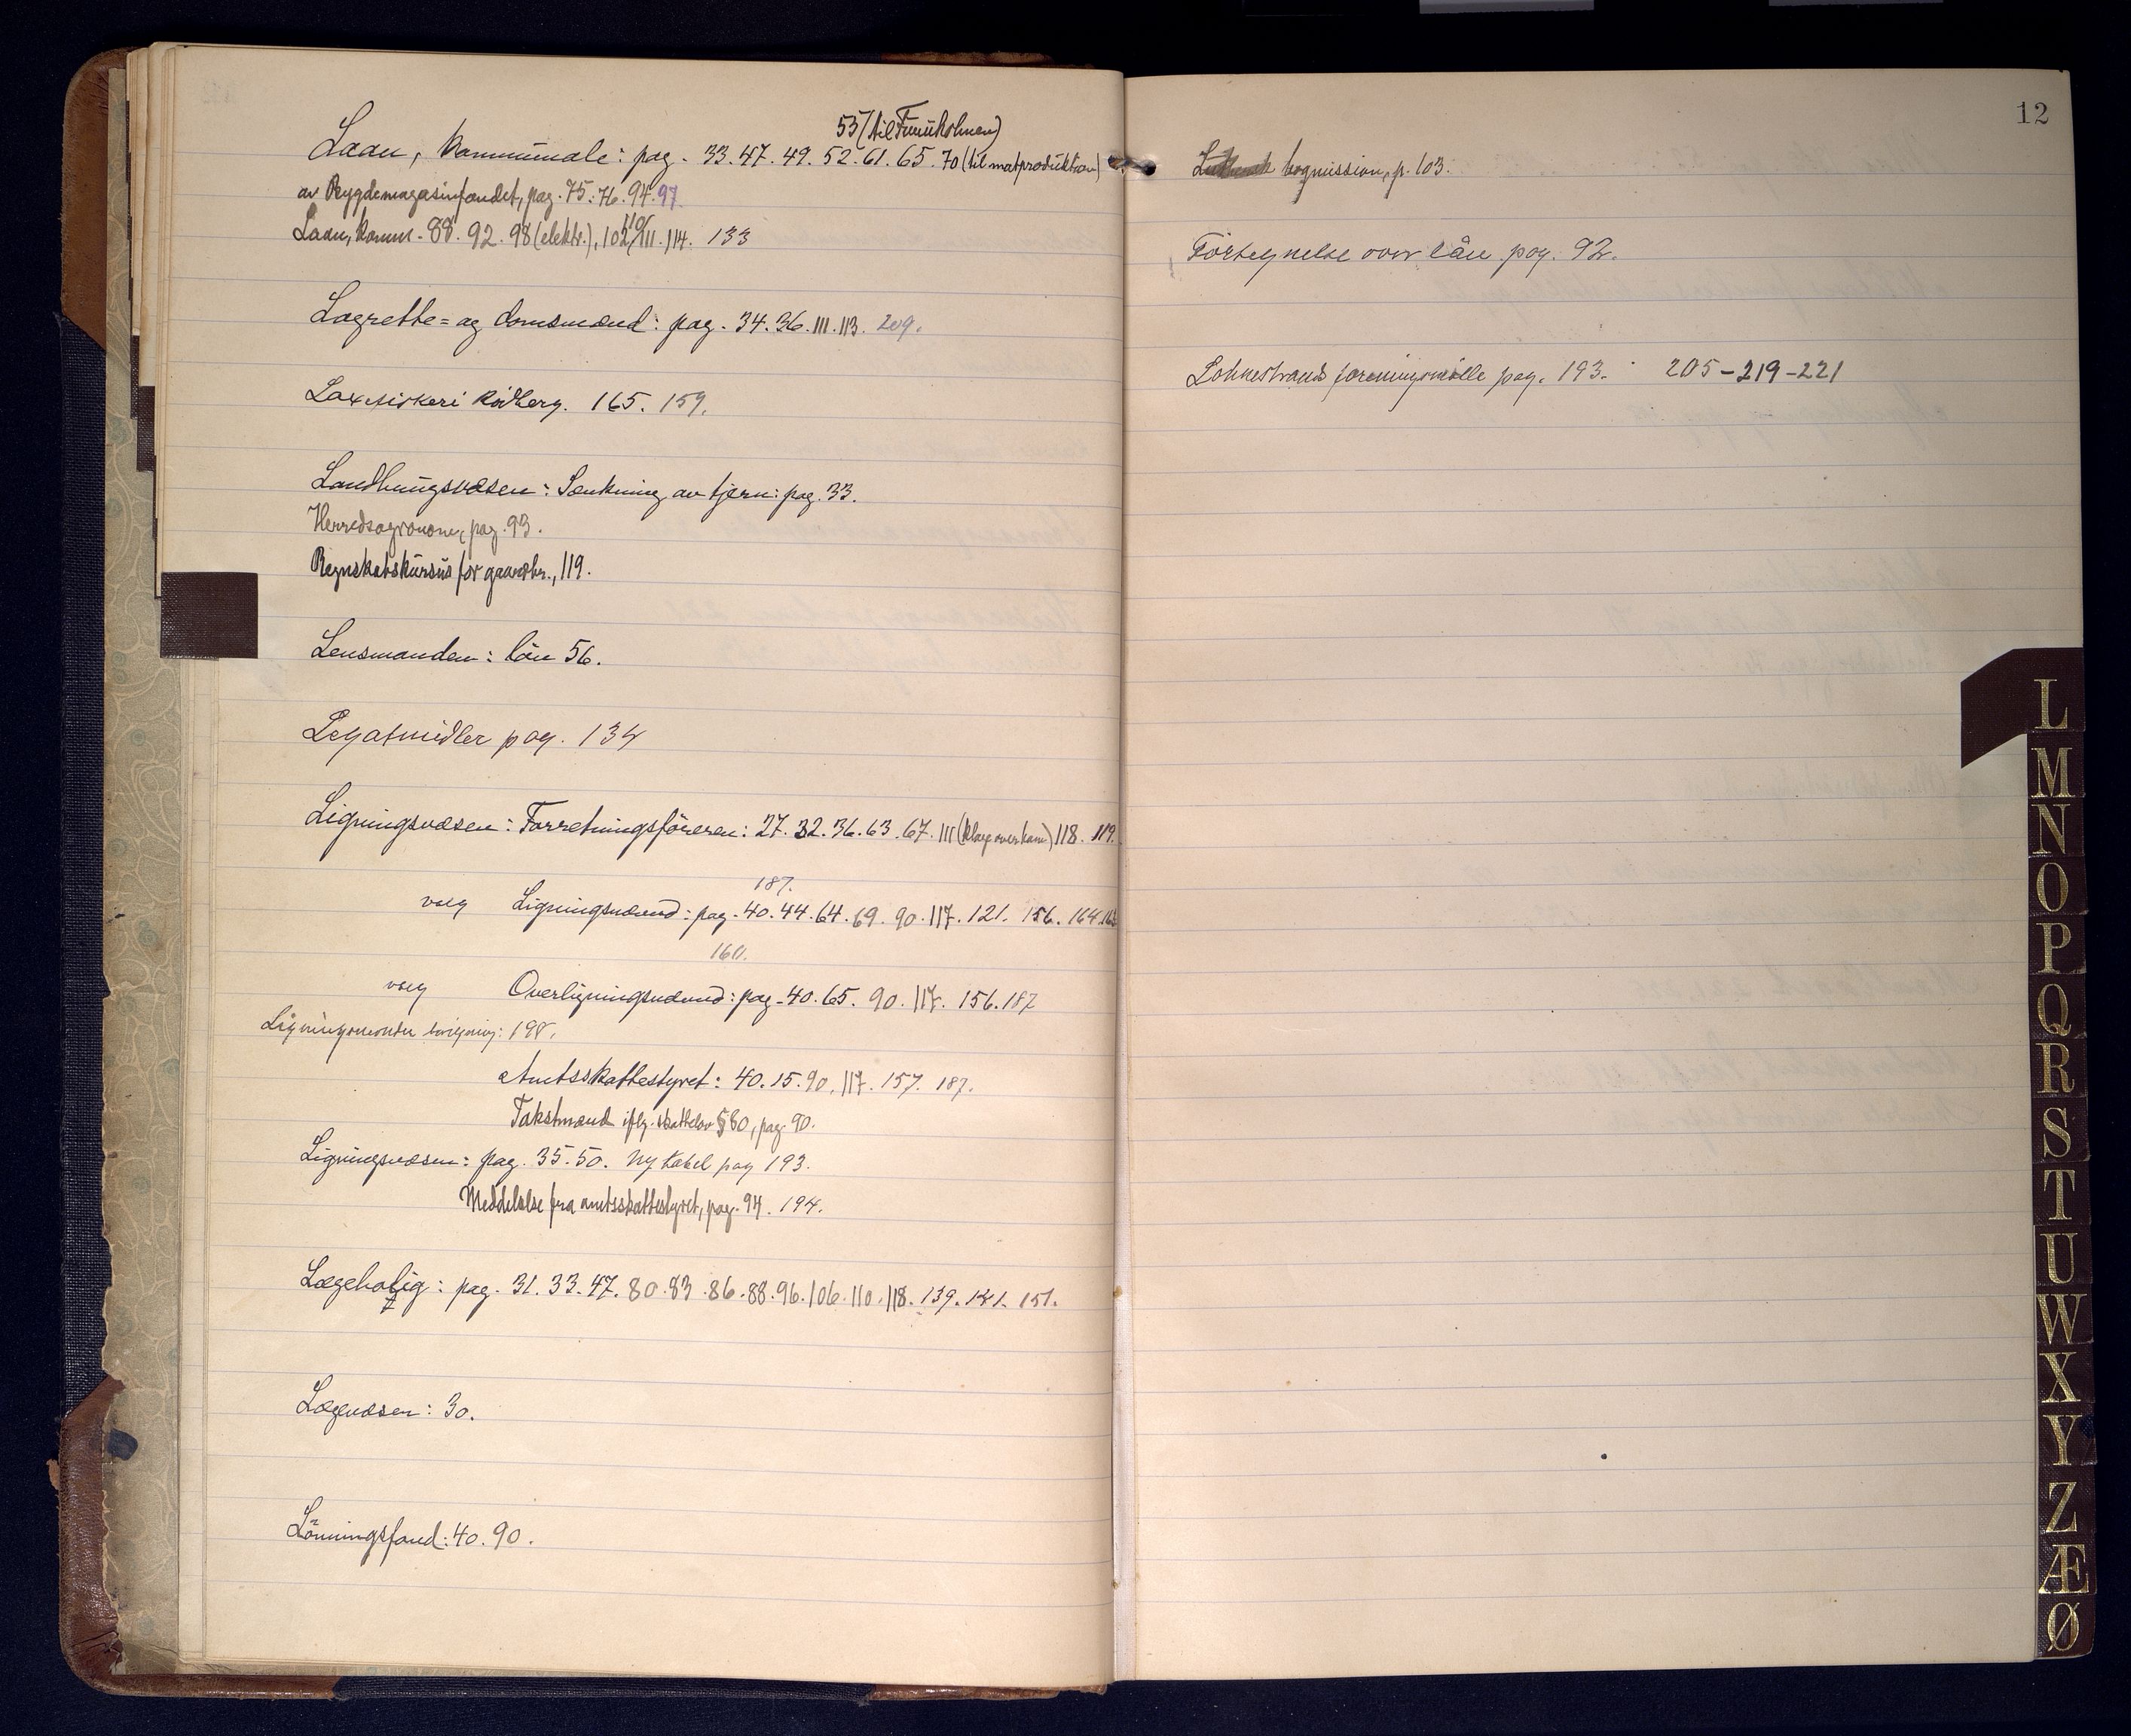 55 (til Furuholmen)
Laan, kommunale: pag. 33. 47. 49. 52. 61. 65. 70 (til matproduktion)
av Bygdemagasinfondet, pag. 75. 76. 94. 97
Laan, komm. 88. 92. 98 (elektr.), 102, 110, 111. 114. 133
Lagrette= og domsmænd: pag. 34. 36. 111. 113. 209.
Laxefiskeri Rödberg. 165. 159.
Landbrugsvæsen: Senkning av tjern: pag. 33.
Herredsagronom, pag. 93.
Regnskabskursus for gaardbr., 119.
Lensmanden: lön 56.
Legatmidler pag. 134
Ligningsvæsen: Forretningsföreren: 27. 32. 36. 63. 67. 111 (klage over ham) 118. 119.
187.
valg Ligningsnævnd: pag. 40. 44. 64. 69. 90. 117. 121. 156. 164.
160.
valg Overligningsnævnd: pag. 40. 65. 90. 117. 156. 187
198.
Amtsskattestyret: 40. 15. 90. 117. 157. 187.
Takstmænd iflg. skattelov § 60, pag. 90.
Ligningsvæsen: pag. 35. 50. Ny tabel pag 193.
Meddelelse fra amtsskattestyret, pag. 94. 194.
Lægebolig: pag. 31. 33. 47. 80. 83. 86. 88. 96. 106. 110. 118. 139. 141. 151.
Lægevæsen: 30.
Lönningsfond: 40. 90.
12
bogmission, p. 103.
Förtegnelse over lån pag. 92.
Lohnestrands foreningsmölle pag. 193. 205-219-221
L
M
N
O
P
Q
R
S
T
U
W
X
Y
Z
Æ
Ø